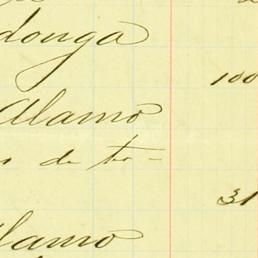 donga
100
Alamo
de to-
31
lamo